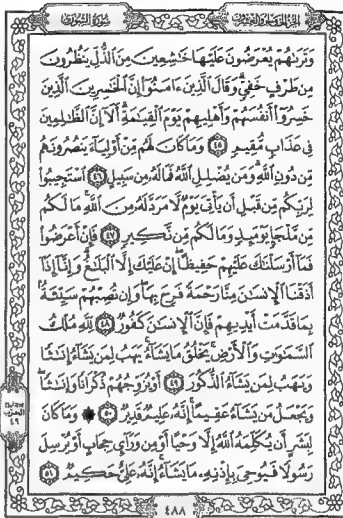 الجزء الخامس والعشرون سورة الشورى
وَتَرَىٰهُمْ يُعْرَضُونَ عَلَيْهَا خَٰشِعِينَ مِنَ ٱلذُّلِّ يَنظُرُونَ
مِن طَرْفٍ خَفِىٍّ وَقَالَ ٱلَّذِينَ ءَامَنُوٓا۟ إِنَّ ٱلْخَٰسِرِينَ ٱلَّذِينَ
خَسِرُوٓا۟ أَنفُسَهُمْ وَأَهْلِيهِمْ يَوْمَ ٱلْقِيَٰمَةِ أَلَآ إِنَّ ٱلظَّٰلِمِينَ
فِى عَذَابٍ مُّقِيمٍ ٤٥ وَمَا كَانَ لَهُم مِّنْ أَوْلِيَآءَ يَنصُرُونَهُم
مِّن دُونِ ٱللَّهِ وَمَن يُضْلِلِ ٱللَّهُ فَمَا لَهُۥ مِن سَبِيلٍ ٤٦ ٱسْتَجِيبُوا۟
لِرَبِّكُم مِّن قَبْلِ أَن يَأْتِىَ يَوْمٌ لَّا مَرَدَّ لَهُۥ مِنَ ٱللَّهِ مَا لَكُم
مِّن مَّلْجَإٍ يَوْمَئِذٍ وَمَا لَكُم مِّن نَّكِيرٍ ٤٧ فَإِنْ أَعْرَضُوا۟
فَمَآ أَرْسَلْنَٰكَ عَلَيْهِمْ حَفِيظًا إِنْ عَلَيْكَ إِلَّا ٱلْبَلَٰغُ وَإِنَّآ إِذَآ
أَذَقْنَا ٱلْإِنسَٰنَ مِنَّا رَحْمَةً فَرِحَ بِهَا وَإِن تُصِبْهُمْ سَيِّئَةٌۢ
بِمَا قَدَّمَتْ أَيْدِيهِمْ فَإِنَّ ٱلْإِنسَٰنَ كَفُورٌ ٤٨ لِّلَّهِ مُلْكُ
ٱلسَّمَٰوَٰتِ وَٱلْأَرْضِ يَخْلُقُ مَا يَشَآءُ يَهَبُ لِمَن يَشَآءُ إِنَٰثًا
وَيَهَبُ لِمَن يَشَآءُ ٱلذُّكُورَ ٤٩ أَوْ يُزَوِّجُهُمْ ذُكْرَانًا وَإِنَٰثًا
وَيَجْعَلُ مَن يَشَآءُ عَقِيمًا إِنَّهُۥ عَلِيمٌ قَدِيرٌ ٥٠ ۞ وَمَا كَانَ
لِبَشَرٍ أَن يُكَلِّمَهُ ٱللَّهُ إِلَّا وَحْيًا أَوْ مِن وَرَآئِ حِجَابٍ أَوْ يُرْسِلَ
رَسُولًا فَيُوحِىَ بِإِذْنِهِۦ مَا يَشَآءُ إِنَّهُۥ عَلِىٌّ حَكِيمٌ ٥١
الحزب
٤٩
٤٨٨